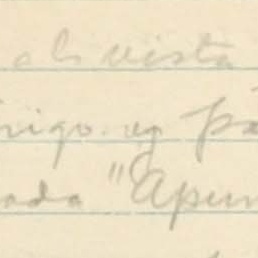 a la vista
rigo. ug pa
ada "Apun